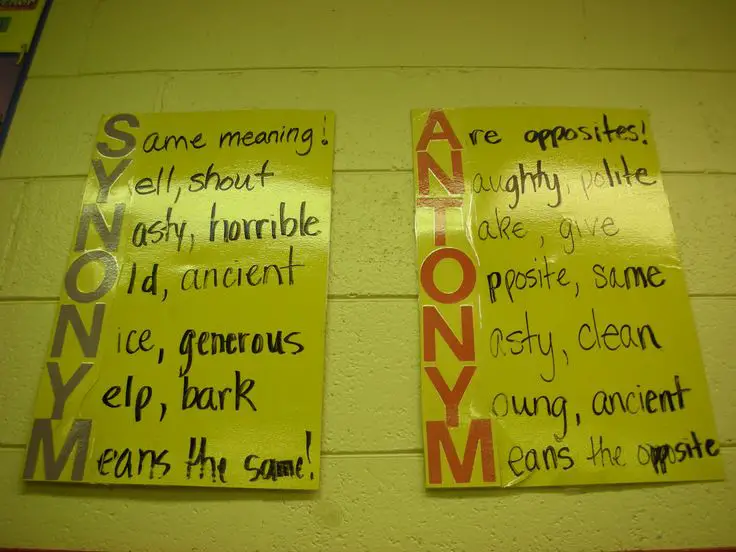 Same meaning!
Yell, shout
Nasty, horrible
Old, ancient
Nice, generous
Yelp, bark
Means the same!
Are opposites!
Naughty, polite
Take, give
Opposite, same
Nasty, clean
Young, ancient
Means the opposite